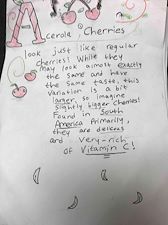 Acerola, Cherries
look just like regular
cherries! While they
may look almost exactly
the same and have
the same taste, this
variation is a bit
larger, so imagine
slightly bigger cherries!
Found in South
America Primarily,
they are delicous
and very-rich
of Vitamin C!